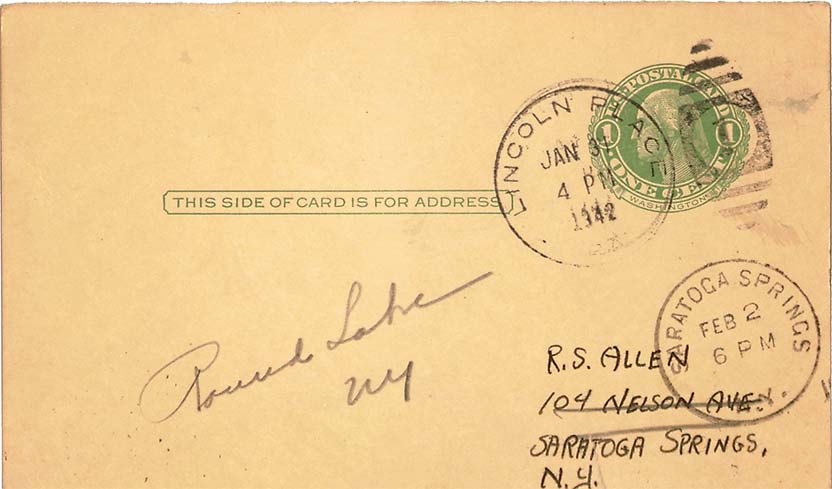 U.S. POSTAL CARD
1 1
ONE CENT
WASHINGTON
LINCOLN PLACE
JAN 31
4 PM
1942
THIS SIDE OF CARD IS FOR ADDRESS
SARATOGA SPRINGS
FEB 2
6 PM
N.Y.
Round Lake
NY
R.S. ALLEN
104 NELSON AVE.
SARATOGA SPRINGS,
N.Y.